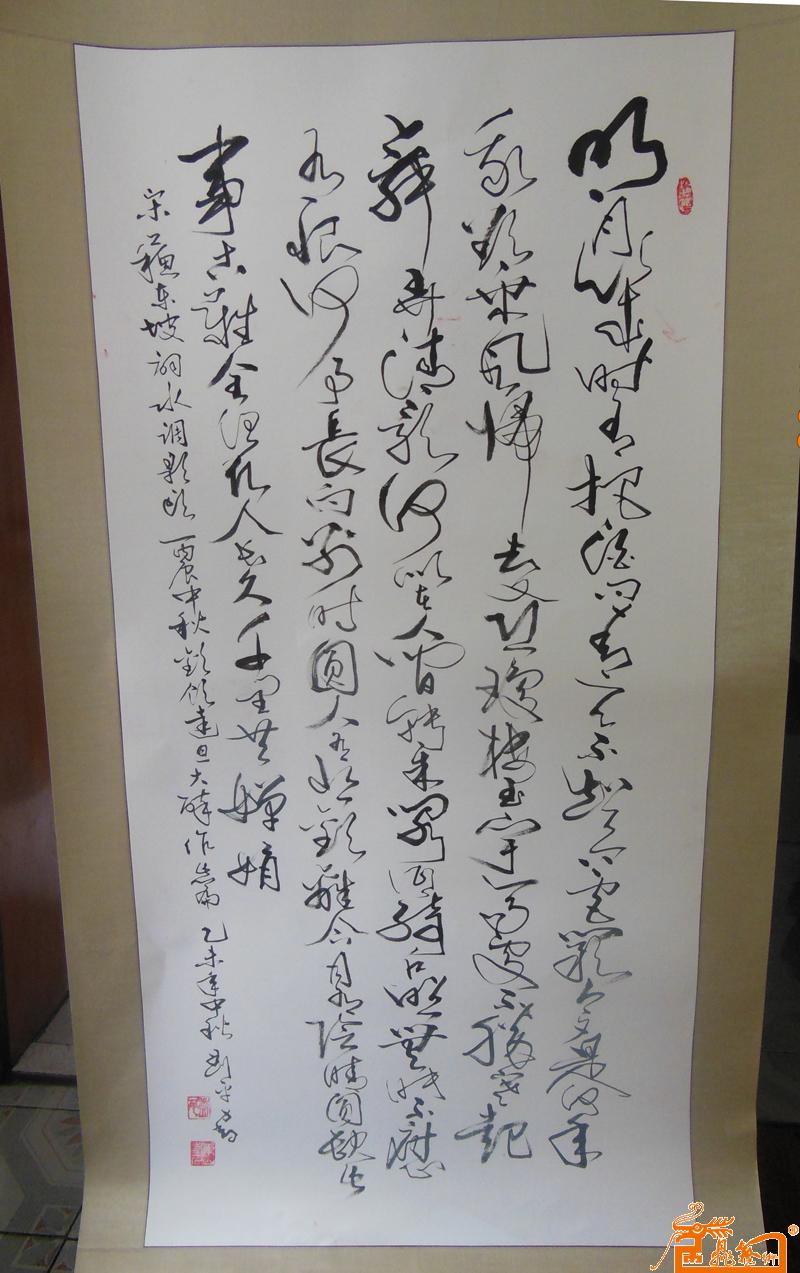 明月几时有把酒问青天不知天上宫阙今夕是何年
我欲乘风归去又恐琼楼玉宇高处不胜寒起
舞弄清影何似在人间转朱阁低绮户照无眠不应
有恨何事长向别时圆人有悲欢离合月有阴晴圆缺此
事古难全但愿人长久千里共婵娟
宋苏东坡词水调歌头丙辰中秋欢饮达旦大醉作此篇 乙未年中秋